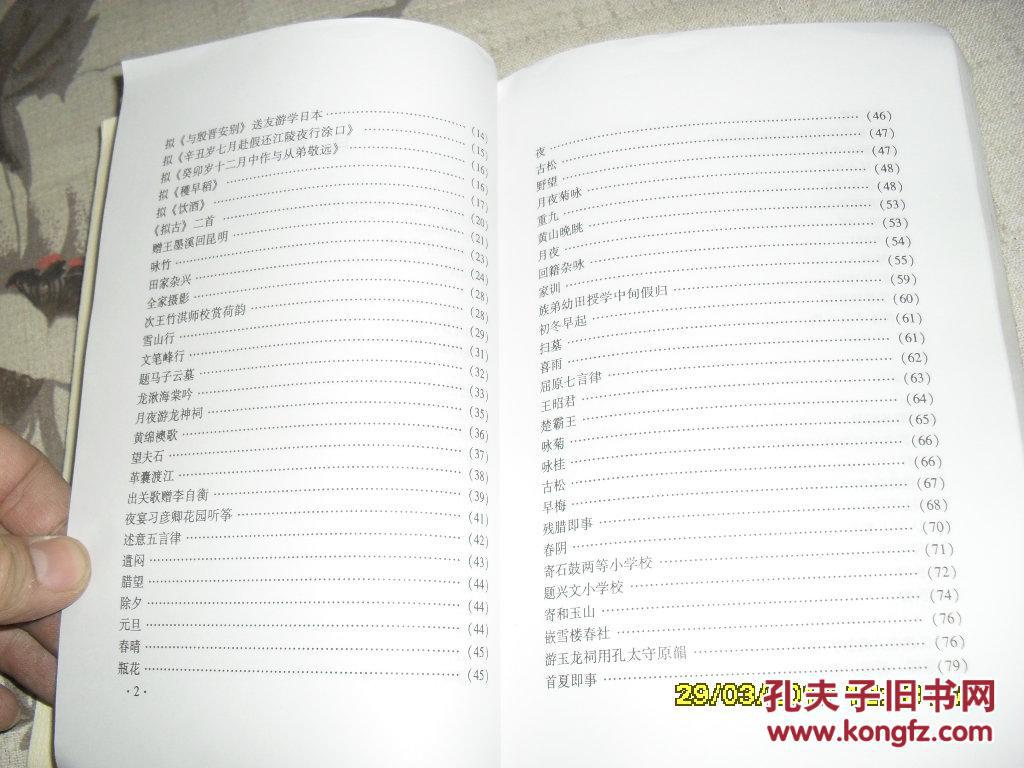 拟《与殷晋安别》送友游学日本 (14)
拟《辛丑岁七月赴假还江陵夜行涂口》 (15)
拟《癸卯岁十二月中作与从弟敬远》 (16)
拟《穫早稻》 (16)
拟《饮酒》 (17)
《拟古》二首 (20)
赠王墨溪回昆明 (21)
咏竹 (23)
田家杂兴 (24)
全家摄影 (28)
次王竹淇师校赏荷韵 (28)
雪山行 (29)
文笔峰行 (31)
题马子云墓 (32)
龙湫海棠吟 (33)
月夜游龙神祠 (35)
黄绵襖歌 (36)
望夫石 (37)
革囊渡江 (38)
出关歌赠李自衡 (39)
夜宴习彦卿花园听筝 (41)
述意五言律 (42)
遣闷 (43)
腊望 (44)
除夕 (44)
元旦 (44)
春晴 (45)
瓶花 (45)
·2·
夜 (46)
古松 (47)
野望 (47)
月夜菊咏 (48)
重九 (48)
黄山晚眺 (53)
月夜 (53)
回籍杂咏 (54)
家训 (55)
族弟幼田授学中甸假归 (59)
初冬早起 (60)
扫墓 (61)
喜雨 (61)
屈原七言律 (62)
王昭君 (63)
楚霸王 (64)
咏菊 (65)
咏桂 (66)
古松 (66)
早梅 (67)
残腊即事 (68)
春阴 (70)
寄石鼓两等小学校 (71)
题兴文小学校 (72)
寄和玉山 (74)
嵌雪楼春社 (76)
游玉龙祠用孔太守原韻 (76)
首夏即事 (79)
29/03/
孔夫子旧书网
www.kongfz.com